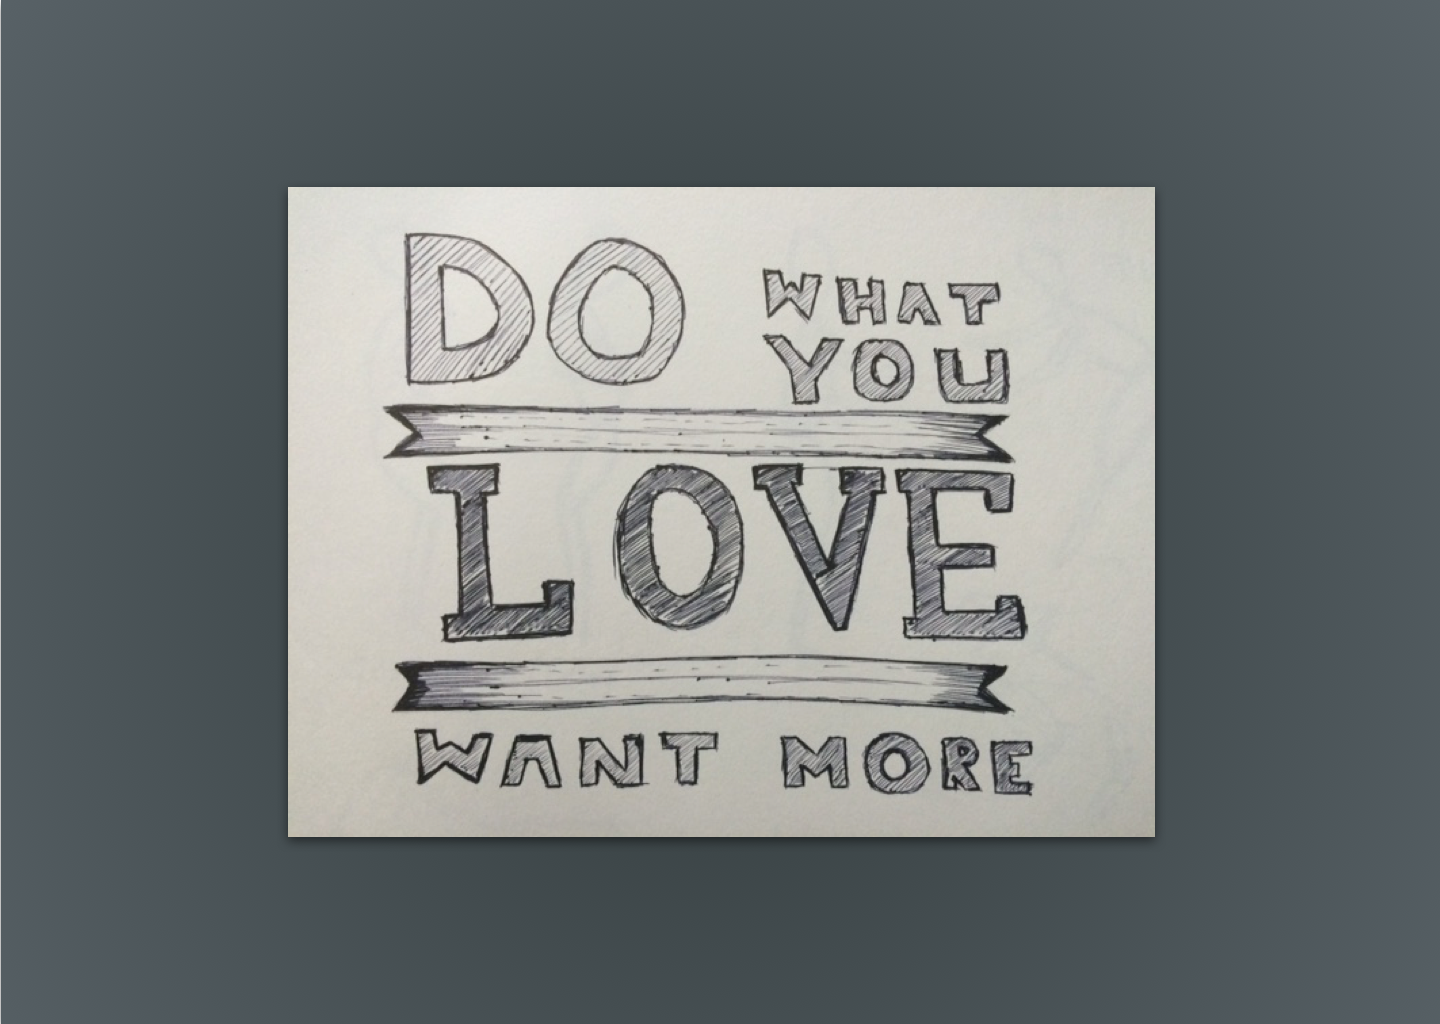 DO WHAT
YOU
LOVE
WANT MORE